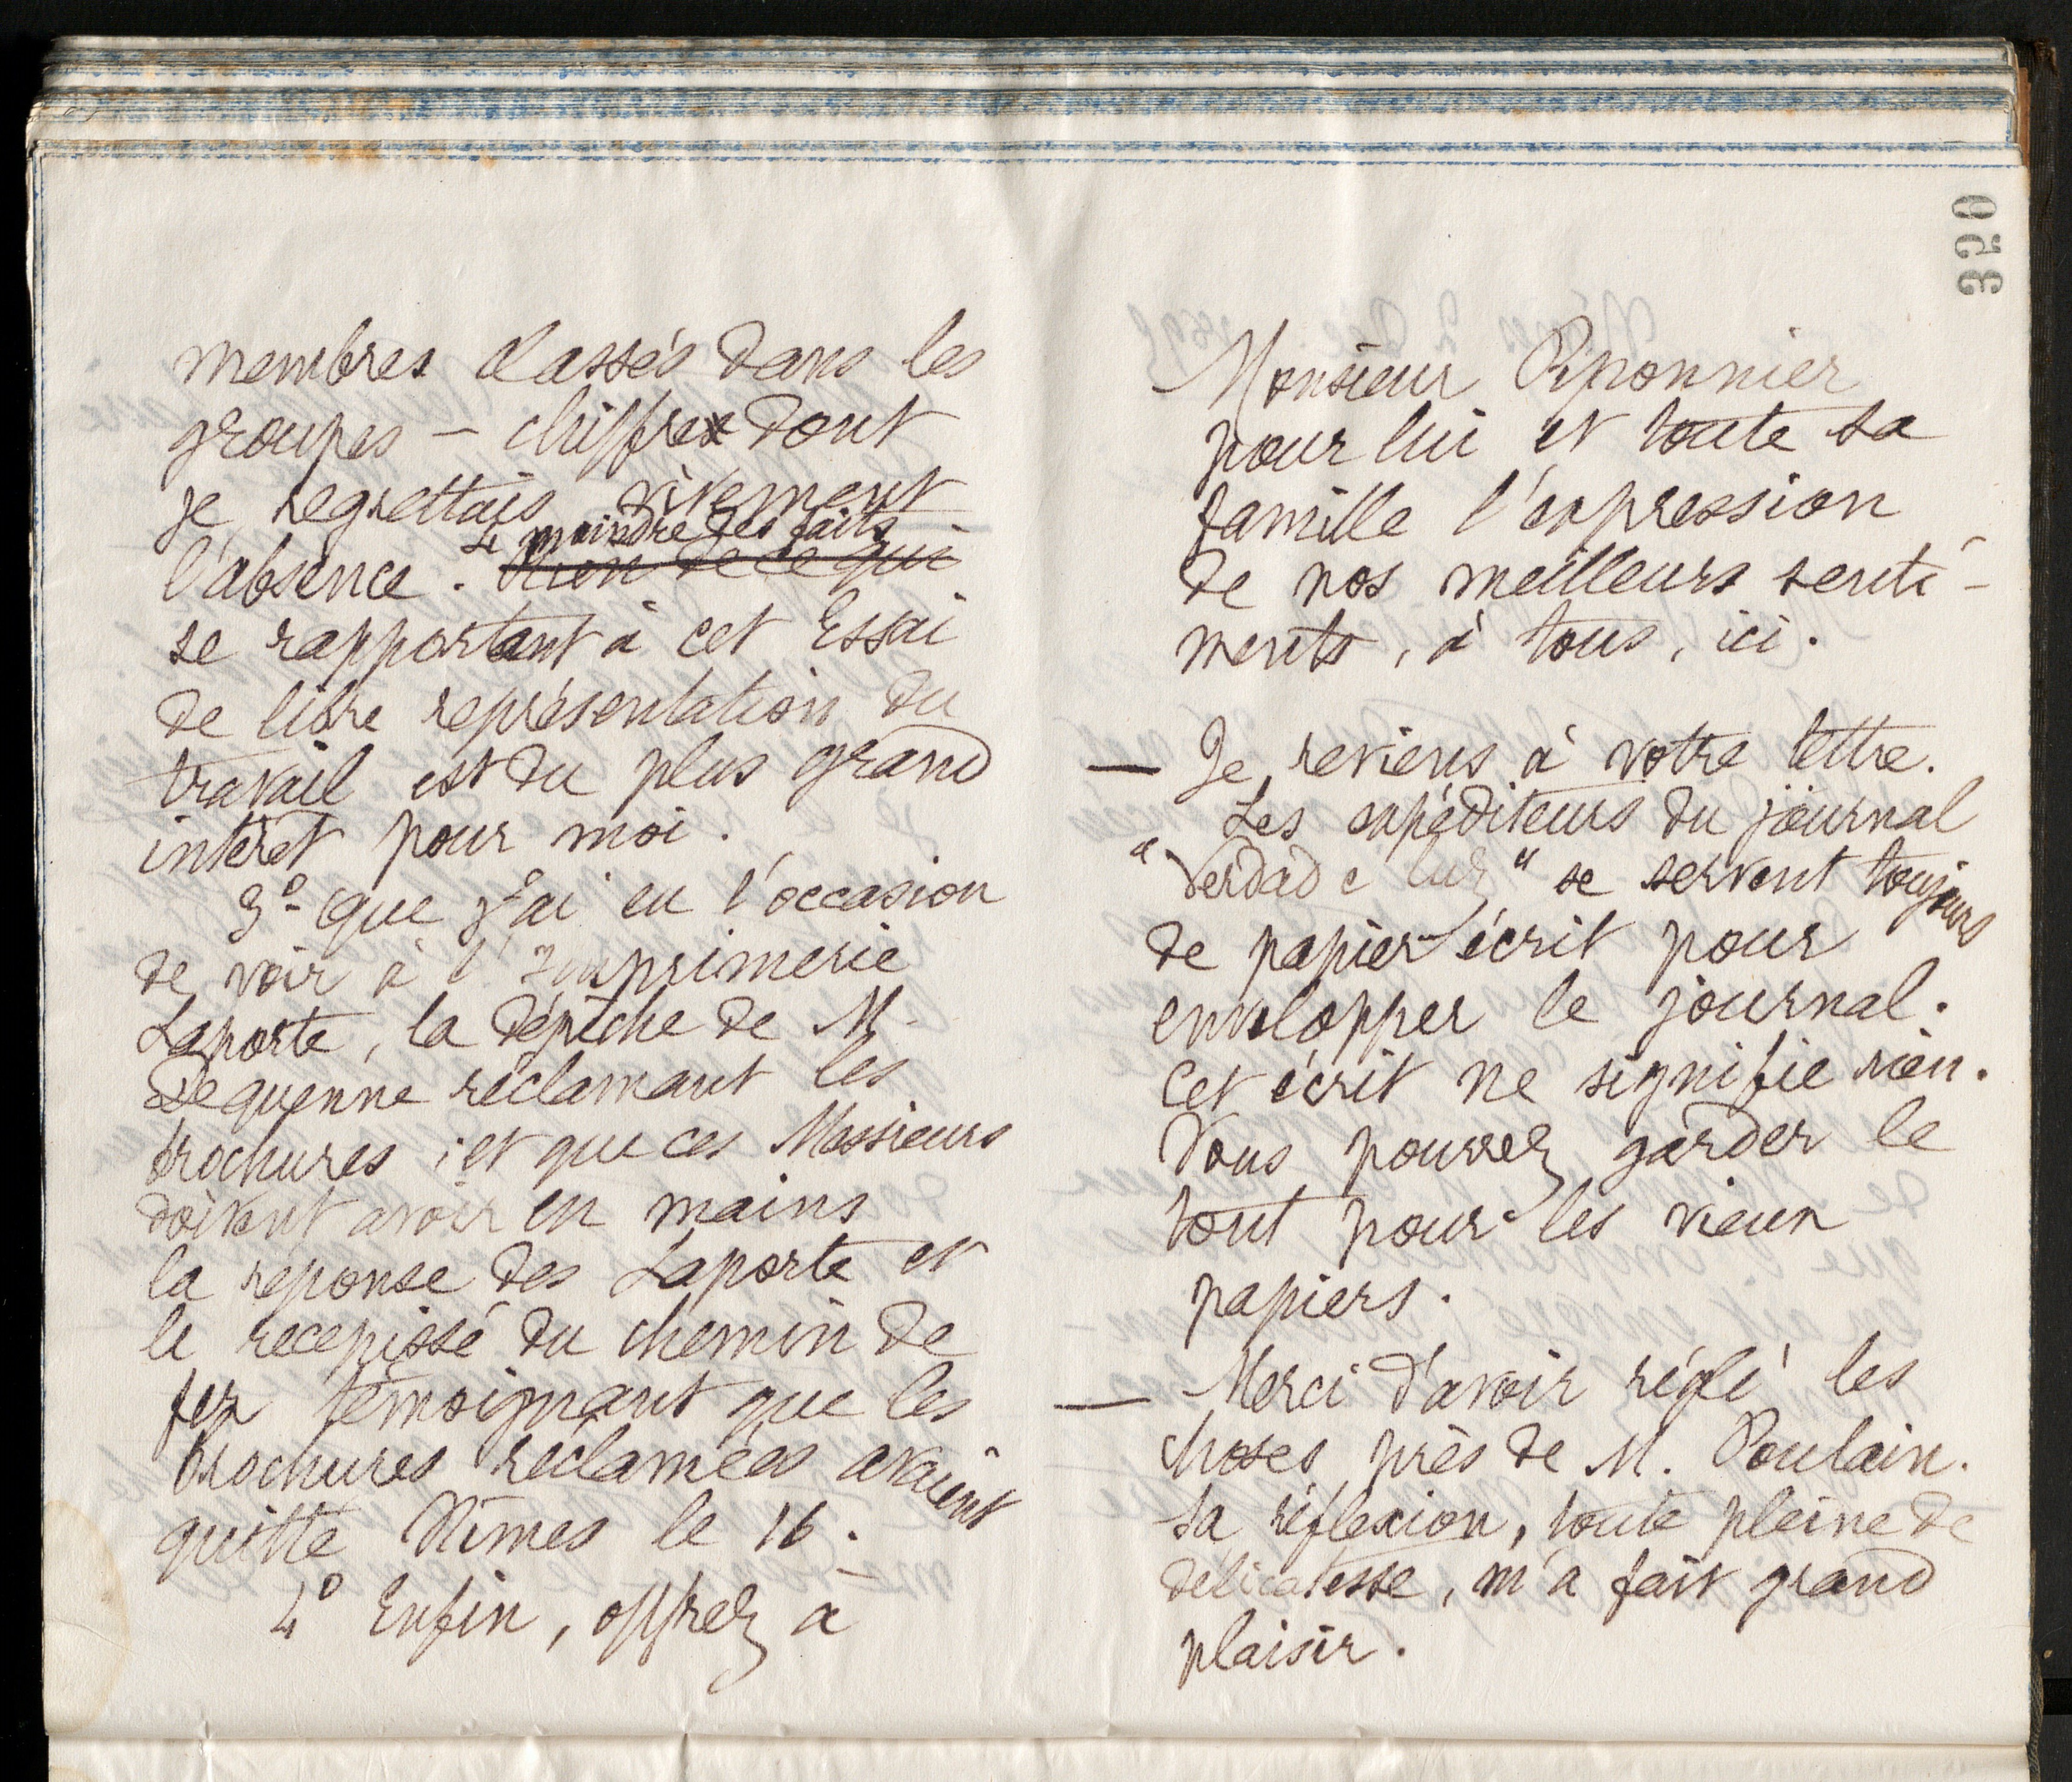 membres classés dans les
groupes – chiffrex dont
je regrettais vivement
Le moindre des faits
l'absence. Rien de ce qui
se rapportant à cet Essai
de libre représentation du
travail est du plus grand
intérêt pour moi.
3º que j'ai eu l'occasion
de voir à l'Imprimerie
Laporte, la dépêche de M.
Dequenne réclamant les
brochures ; et que ces Messieurs
doivent avoir en mains
la réponse des Laporte et
le recepissé du chemin de
fer témoignant que les
brochures réclamées avaient
quitté Nîmes le 16.
4º Enfin, offrez à
350
Monsieur Pponnier
pour lui et toute sa
famille l'expression
de nos meilleurs senti-
ments, à tous, ici.
— Je reviens à votre lettre.
Les expéditeurs du journal
"Verdad e luz" se servent toujours
de papier écrit pour
envelopper le journal.
Cet écrit ne signifie rien.
Vous pouvez garder le
tout pour les vieux
papiers.
— Merci d'avoir réglé les
choses près de M. Poulain.
Sa réflexion, toute pleine de
délicatesse, m'a fait grand
plaisir.